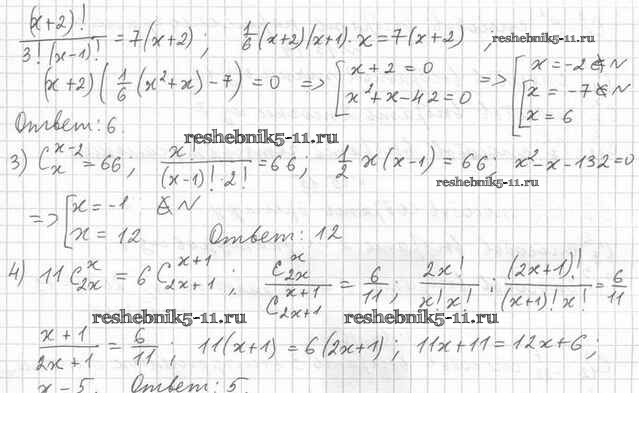 (x+2)! / 3!(x-1)! = 7(x+2); 1/6 (x+2)(x+1)·x = 7(x+2), reshebnik5-11.ru
(x+2)(1/6(x²+x)-7) = 0 => [x+2=0 x²+x-42=0 => [x=-2 ∉ N [x=-7 ∉ N x=6
Ответ: 6.
reshebnik5-11.ru
3) C_x^{x-2} = 66; x! / (x-1)!·2! = 66; 1/2 x(x-1) = 66; x²-x-132=0
reshebnik5-11.ru
=> [x=-1 ∉ N x=12 Ответ: 12
4) 11C_{2x}^{x} = 6C_{2x+1}^{x+1}; C_{2x}^{x} / C_{2x+1}^{x+1} = 6/11; 2x! / x!x! : (2x+1)! / (x+1)!x! = 6/11
reshebnik5-11.ru reshebnik5-11.ru
x+1 / 2x+1 = 6/11; 11(x+1) = 6(2x+1); 11x+11=12x+6;
x-5. Ответ: 5.